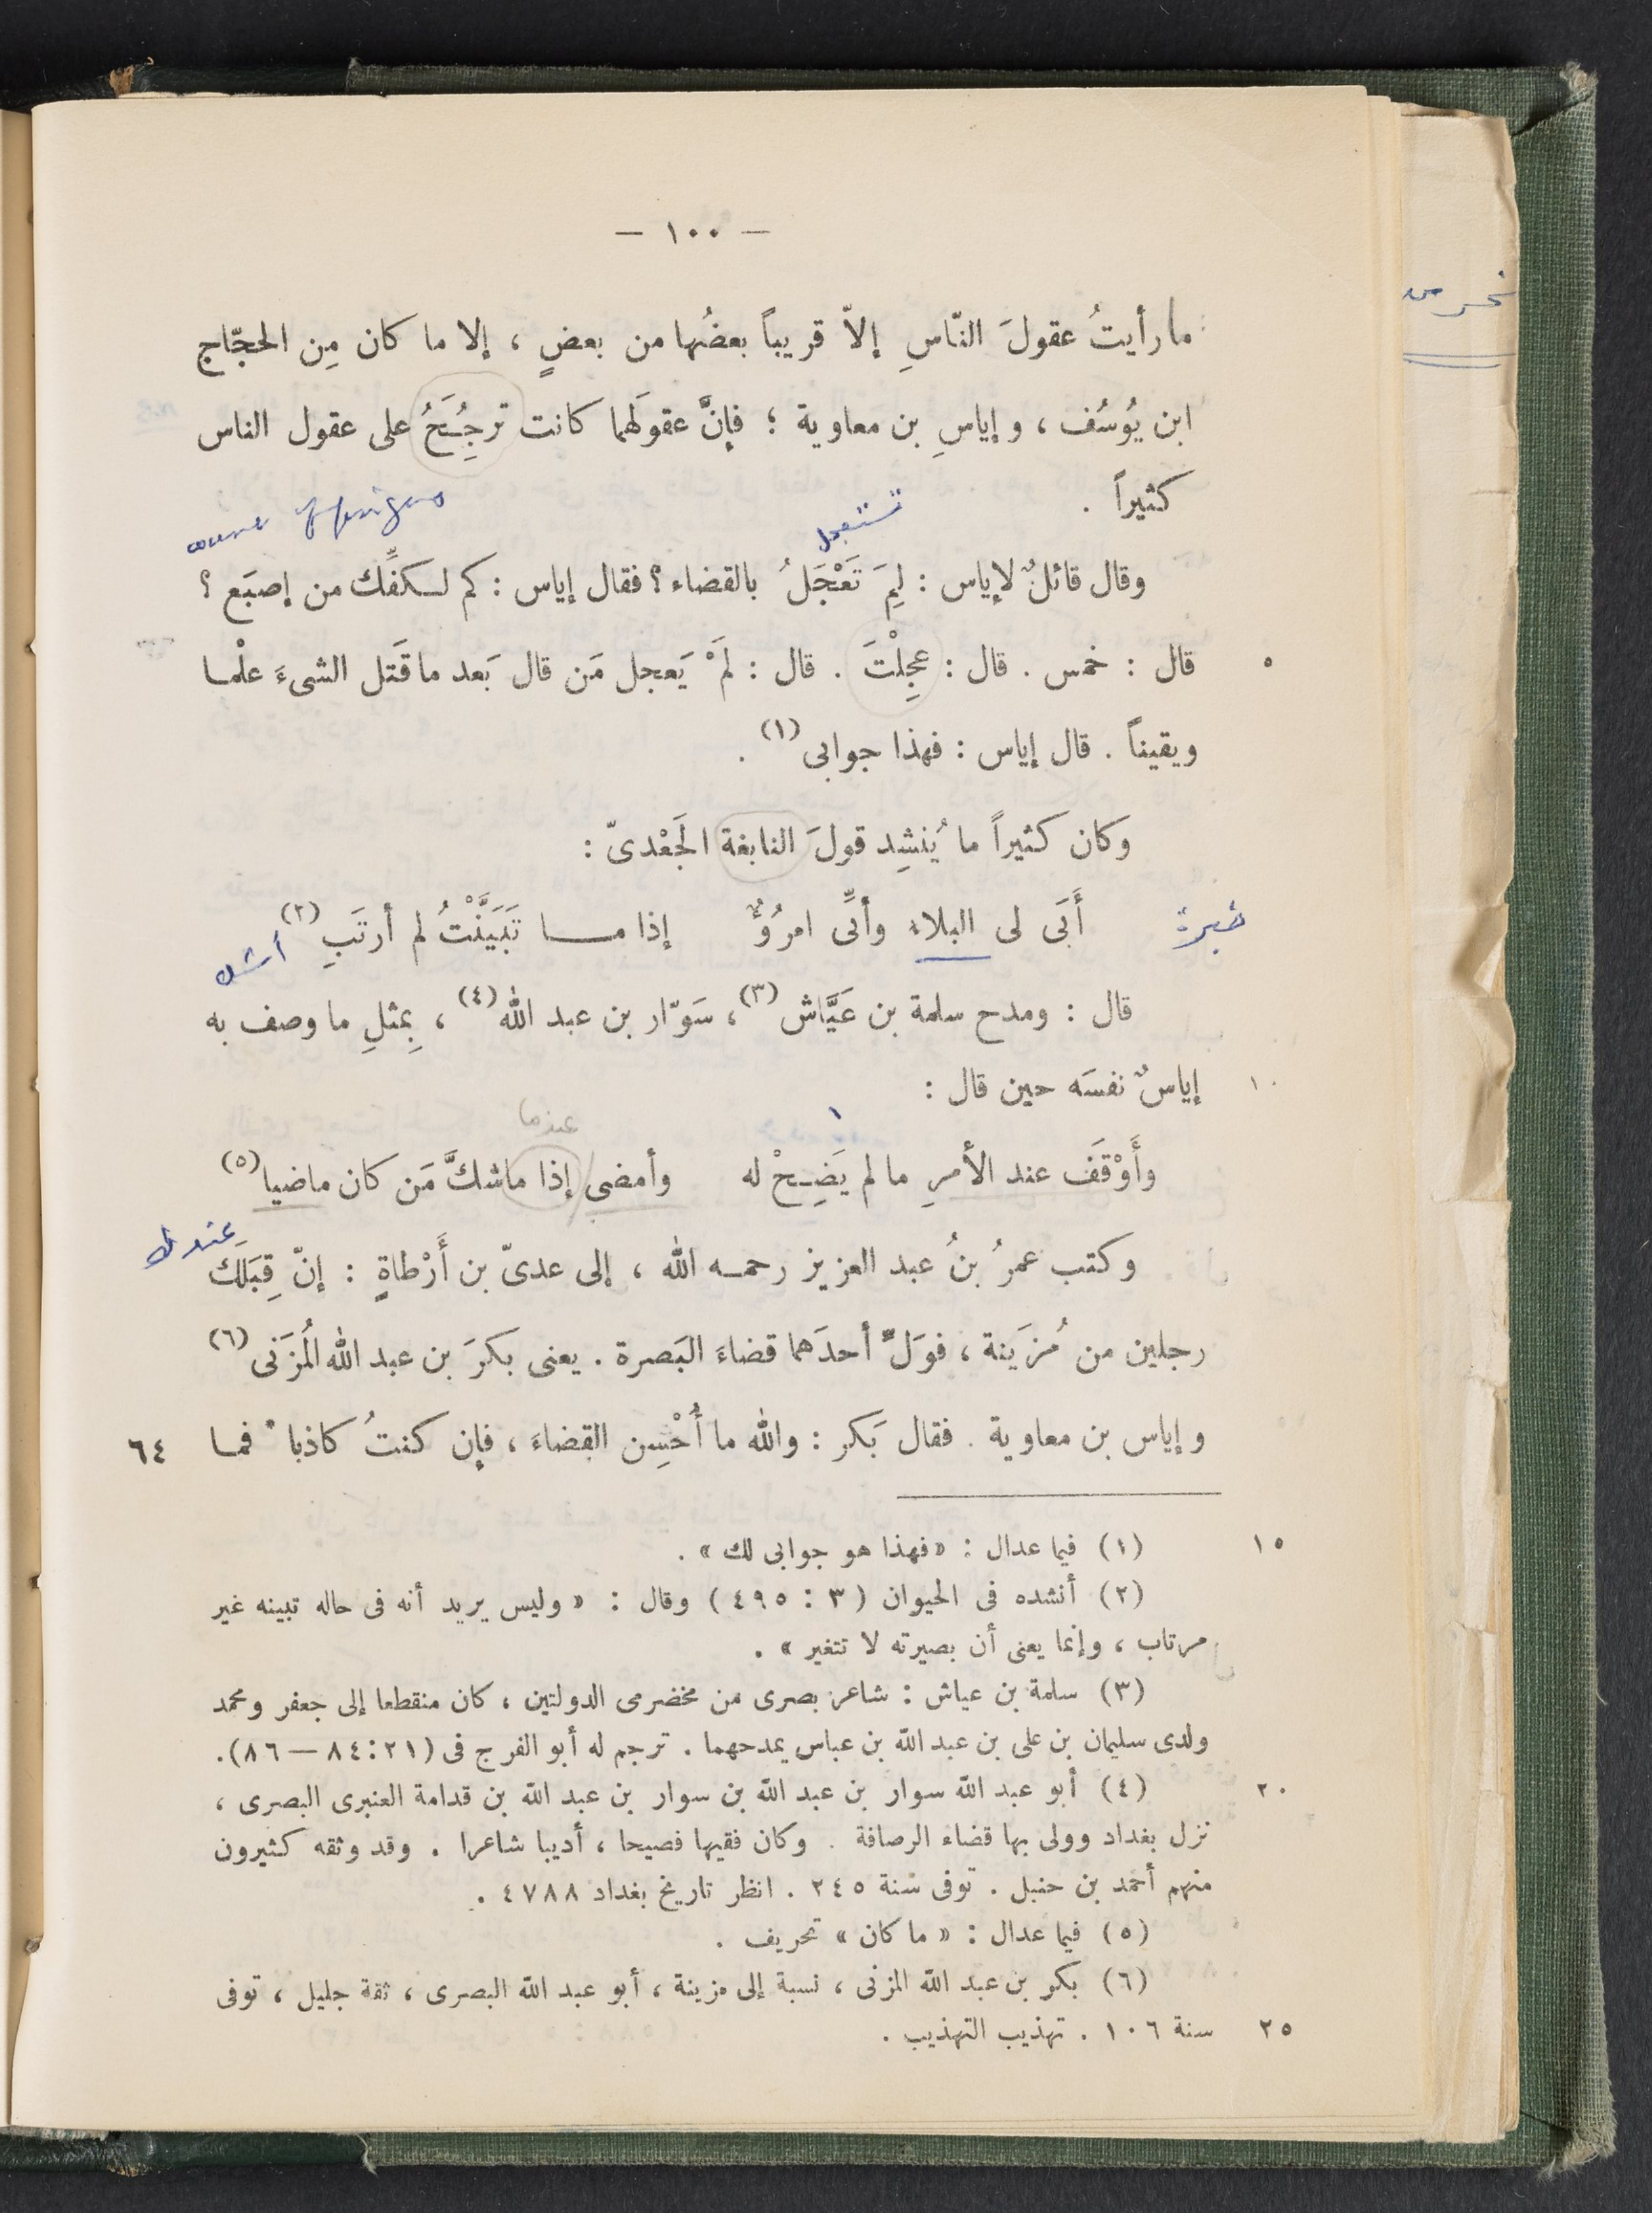 — ١٠٠ —
ما رأيتُ عقولَ النّاسِ إلاّ قريباً بعضُها من بعضٍ ، إلا ما كان مِن الحجّاج
ابن يُوسُف ، وإياسِ بن معاوية ؛ فإنَّ عقولَهما كانت ترجُِحَُ على عقول الناس
كثيراً .
تستعجل
وقال قائلٌ لإياس : لِمَ تَعْجَلُ بالقضاء ؟ فقال إياس : كم لكفِّك من إصبَع ؟
٥ قال : خمس . قال : عجِلْتَ . قال : لَمْ يَعجل مَن قال بَعد ما قَتل الشىءَ علْما
ويقيناً . قال إياس : فهذا جوابى (١) .
وكان كثيراً ما يُنشِد قولَ النابغة الجَعْدىّ :
خبرة
أَبَى لى البلاء وأنِّى امرُؤٌ إذا ما تَبَيَّنْتُ لم أرتَبِ (٢)
أشك
قال : ومدح سلمة بن عَيَّاش (٣) ، سَوّار بن عبد الله (٤) ، بِمثلِ ما وصف به
١٠ إياسٌ نفسَه حين قال :
عندما
وأَوْقَف عند الأمرِ ما لم يَضِحْ له وأمضى إذا ما شكَّ مَن كان ماضيا (٥)
عندك
وكتب عمرُ بنُ عبد العزيز رحمه الله ، إلى عدىّ بن أَرْطاةٍ : إنّ قِبَلَك
رجلين من مُزَينة ، فوَلِّ أحدَهما قضاءَ البَصرة . يعنى بكرَ بن عبد الله المُزَنى (٦)
وإياس بن معاوية . فقال بَكر : والله ما أُحْسِن القضاءَ ، فإن كنتُ كاذبا * فما ٦٤
١٥ (١) فيما عدال : « فهذا هو جوابى لك » .
(٢) أنشده فى الحيوان ( ٣ : ٤٩٥ ) وقال : « وليس يريد أنه فى حاله تبينه غير
مرتاب ، وإنما يعنى أن بصيرته لا تتغير » .
(٣) سلمة بن عياش : شاعر بصرى من مخضرمى الدولتين ، كان منقطعا إلى جعفر ومحمد
ولدى سليمان بن على بن عبد الله بن عباس يمدحهما . ترجم له أبو الفرج فى (٢١ : ٨٤ — ٨٦) .
٢٠ (٤) أبو عبد الله سوار بن عبد الله بن سوار بن عبد الله بن قدامة العنبرى البصرى ،
نزل بغداد وولى بها قضاء الرصافة . وكان فقيها فصيحا ، أديبا شاعرا . وقد وثقه كثيرون
منهم أحمد بن حنبل . توفى سنة ٢٤٥ . انظر تاريخ بغداد ٤٧٨٨ .
(٥) فيما عدال : « ما كان » تحريف .
(٦) بكر بن عبد الله المزنى ، نسبة إلى مزينة ، أبو عبد الله البصرى ، ثقة جليل ، توفى
٢٥ سنة ١٠٦ . تهذيب التهذيب .